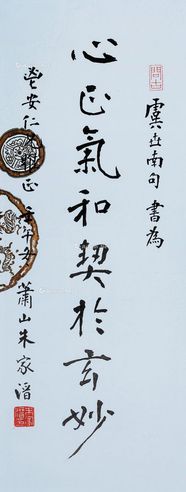 虞世南句 書為
心正氣和契於玄妙
安仁兄 正 壬午 蕭山朱家溍